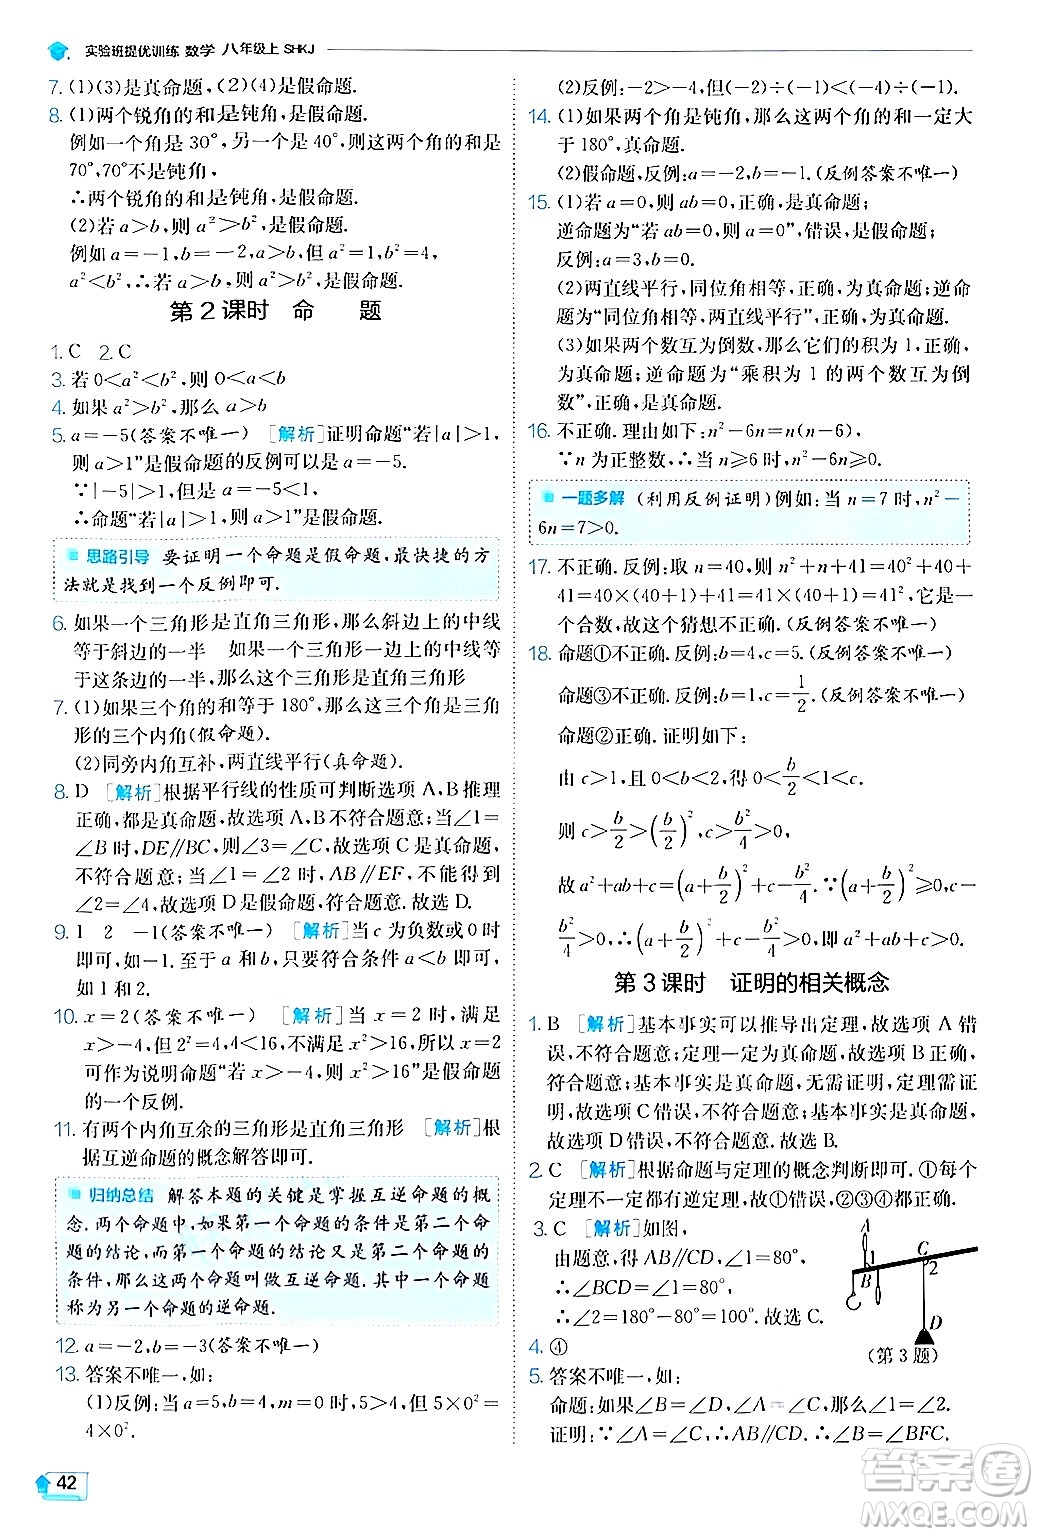 实验班提优训练 数学 八年级上 SHKJ
7. (1)(3)是真命题,(2)(4)是假命题.
8. (1)两个锐角的和是钝角,是假命题.
例如一个角是30°,另一个是40°,则这两个角的和是
70°,70°不是钝角,
∴两个锐角的和是钝角,是假命题.
(2)若 a>b,则 a²>b²,是假命题.
例如 a=-1,b=-2,满足 a>b,但 a²=1,b²=4,
a²<b²,∴若 a>b,则 a²>b²,是假命题.
第2课时 命 题
1. C 2. C
3. 若 0<a²<b²,则 0<a<b
4. 如果 a²>b²,那么 a>b
5. a=-5(答案不唯一) [解析]证明命题“若|a|>1,
则 a>1”是假命题的反例可以是 a=-5.
∵|-5|>1,但是-5<1,
∴命题“若|a|>1,则 a>1”是假命题.
思路引导 要证明一个命题是假命题,最快捷的方
法就是找到一个反例即可.
6. 如果一个三角形是直角三角形,那么斜边上的中线
等于斜边的一半 如果一个三角形一边上的中线等于
这条边的一半,那么这个三角形是直角三角形
7. (1)如果三个角的和等于180°,那么这三个角是三角
形的三个内角(假命题).
(2)同旁内角互补,两直线平行(真命题).
8. D [解析]根据平行线的性质可判断选项 A、B推理
正确,都是真命题,故选项A、B不符合题意;当∠1=
∠B 时,DE∥BC,则∠3=∠C,故选项 C 是真命题,
不符合题意;当∠1=∠2 时,AB∥EF,不能得到
∠2=∠4,故选项D是假命题,符合题意.故选D.
9. 1 2 -1(答案不唯一) [解析]当 c 为负数或0时
即可,如-1.至于 a 和 b,只要符合条件 a<b 即可,
如 1 和 2.
10. x=2(答案不唯一) [解析]当 x=2 时,满足
x>-4,但 2²=4<16,不满足 x²>16,所以 x=2
可作为说明命题“若 x>-4,则 x²>16”是假命题
的一个反例.
11. 有两个内角互余的三角形是直角三角形 [解析]根
据互逆命题的概念解答即可.
归纳总结 解答本题的关键是掌握互逆命题的概
念.两个命题中,如果第一个命题的条件是第二个命
题的结论,而第一个命题的结论又是第二个命题的
条件,那么这两个命题叫做互逆命题.其中一个命题
称为另一个命题的逆命题.
12. a=-2,b=-3(答案不唯一)
13. 答案不唯一,如:
(1)反例:当 a=5,b=4,m=0 时,5>4,但 5×0²=
4×0².
(2)反例:-2>-4,但(-2)÷(-1)<(-4)÷(-1).
14. (1)如果两个角是钝角,那么这两个角的和一定大
于180°,真命题.
(2)假命题,反例:a=-2,b=-1.(反例答案不唯一)
15. (1)若 a=0,则 ab=0,正确,是真命题;
逆命题为“若 ab=0,则 a=0”,错误,是假命题;
反例:a=3,b=0.
(2)两直线平行,同位角相等,正确,为真命题;逆命
题为“同位角相等,两直线平行”,正确,为真命题.
(3)如果两个数互为倒数,那么它们的积为 1,正确,
是真命题;逆命题为“乘积为 1 的两个数互为倒
数”,正确,是真命题.
16. 不正确.理由如下:n²-6n=n(n-6),
∵n 为正整数,∴当 n≥6 时,n²-6n≥0.
一题多解 (利用反例证明)例如:当 n=7 时,n²-
6n=7>0.
17. 不正确.反例:取 n=40,则 n²+n+41=40²+40+
41=40×(40+1)+41=41×(40+1)=41²,它是一
个合数,故这个猜想不正确.(反例答案不唯一)
18. 命题①不正确.反例:b=4,c=5.(反例答案不唯一)
命题③不正确.反例:b=1,c=1/2.(反例答案不唯一)
命题②正确.证明如下:
由 c>1,且 0<b<2,得 0<b/2<1<c.
则 c>b/2>(b/2)²,c>b²/4>0,
故 a²+ab+c=(a+b/2)²+c-b²/4.∵(a+b/2)²≥0,c-
b²/4>0,∴(a+b/2)²+c-b²/4>0,即 a²+ab+c>0.
第3课时 证明的相关概念
1. B [解析]基本事实可以推导出定理,故选项 A 错
误,不符合题意;定理一定是真命题,故选项 B 正确,
符合题意;基本事实是真命题,无需证明,定理需证
明,故选项C错误,不符合题意;基本事实是真命题,
故选项 D 错误,不符合题意.故选 B.
2. C [解析]根据命题与定理的概念判断即可.①每个
定理不一定都有逆定理,故错误;②③④都正确.
3. C [解析]如图,
由题意,得 AB∥CD,∠1=80°,
∴∠BCD=∠1=80°,
∴∠2=180°-80°=100°.故选C.
A
1
B
C
2
D
(第3题)
4. ④
5. 答案不唯一,如:
命题:如果∠B=∠D,∠A=∠C,那么∠1=∠2.
证明:∵∠B=∠D,∴AB∥CD,∴∠A=∠BFC.
42
答案圈
MXQE.COM